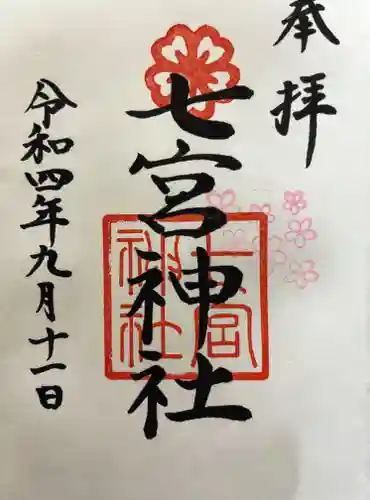 奉拝
七宮神社
七宮
神社
令和四年九月十一日